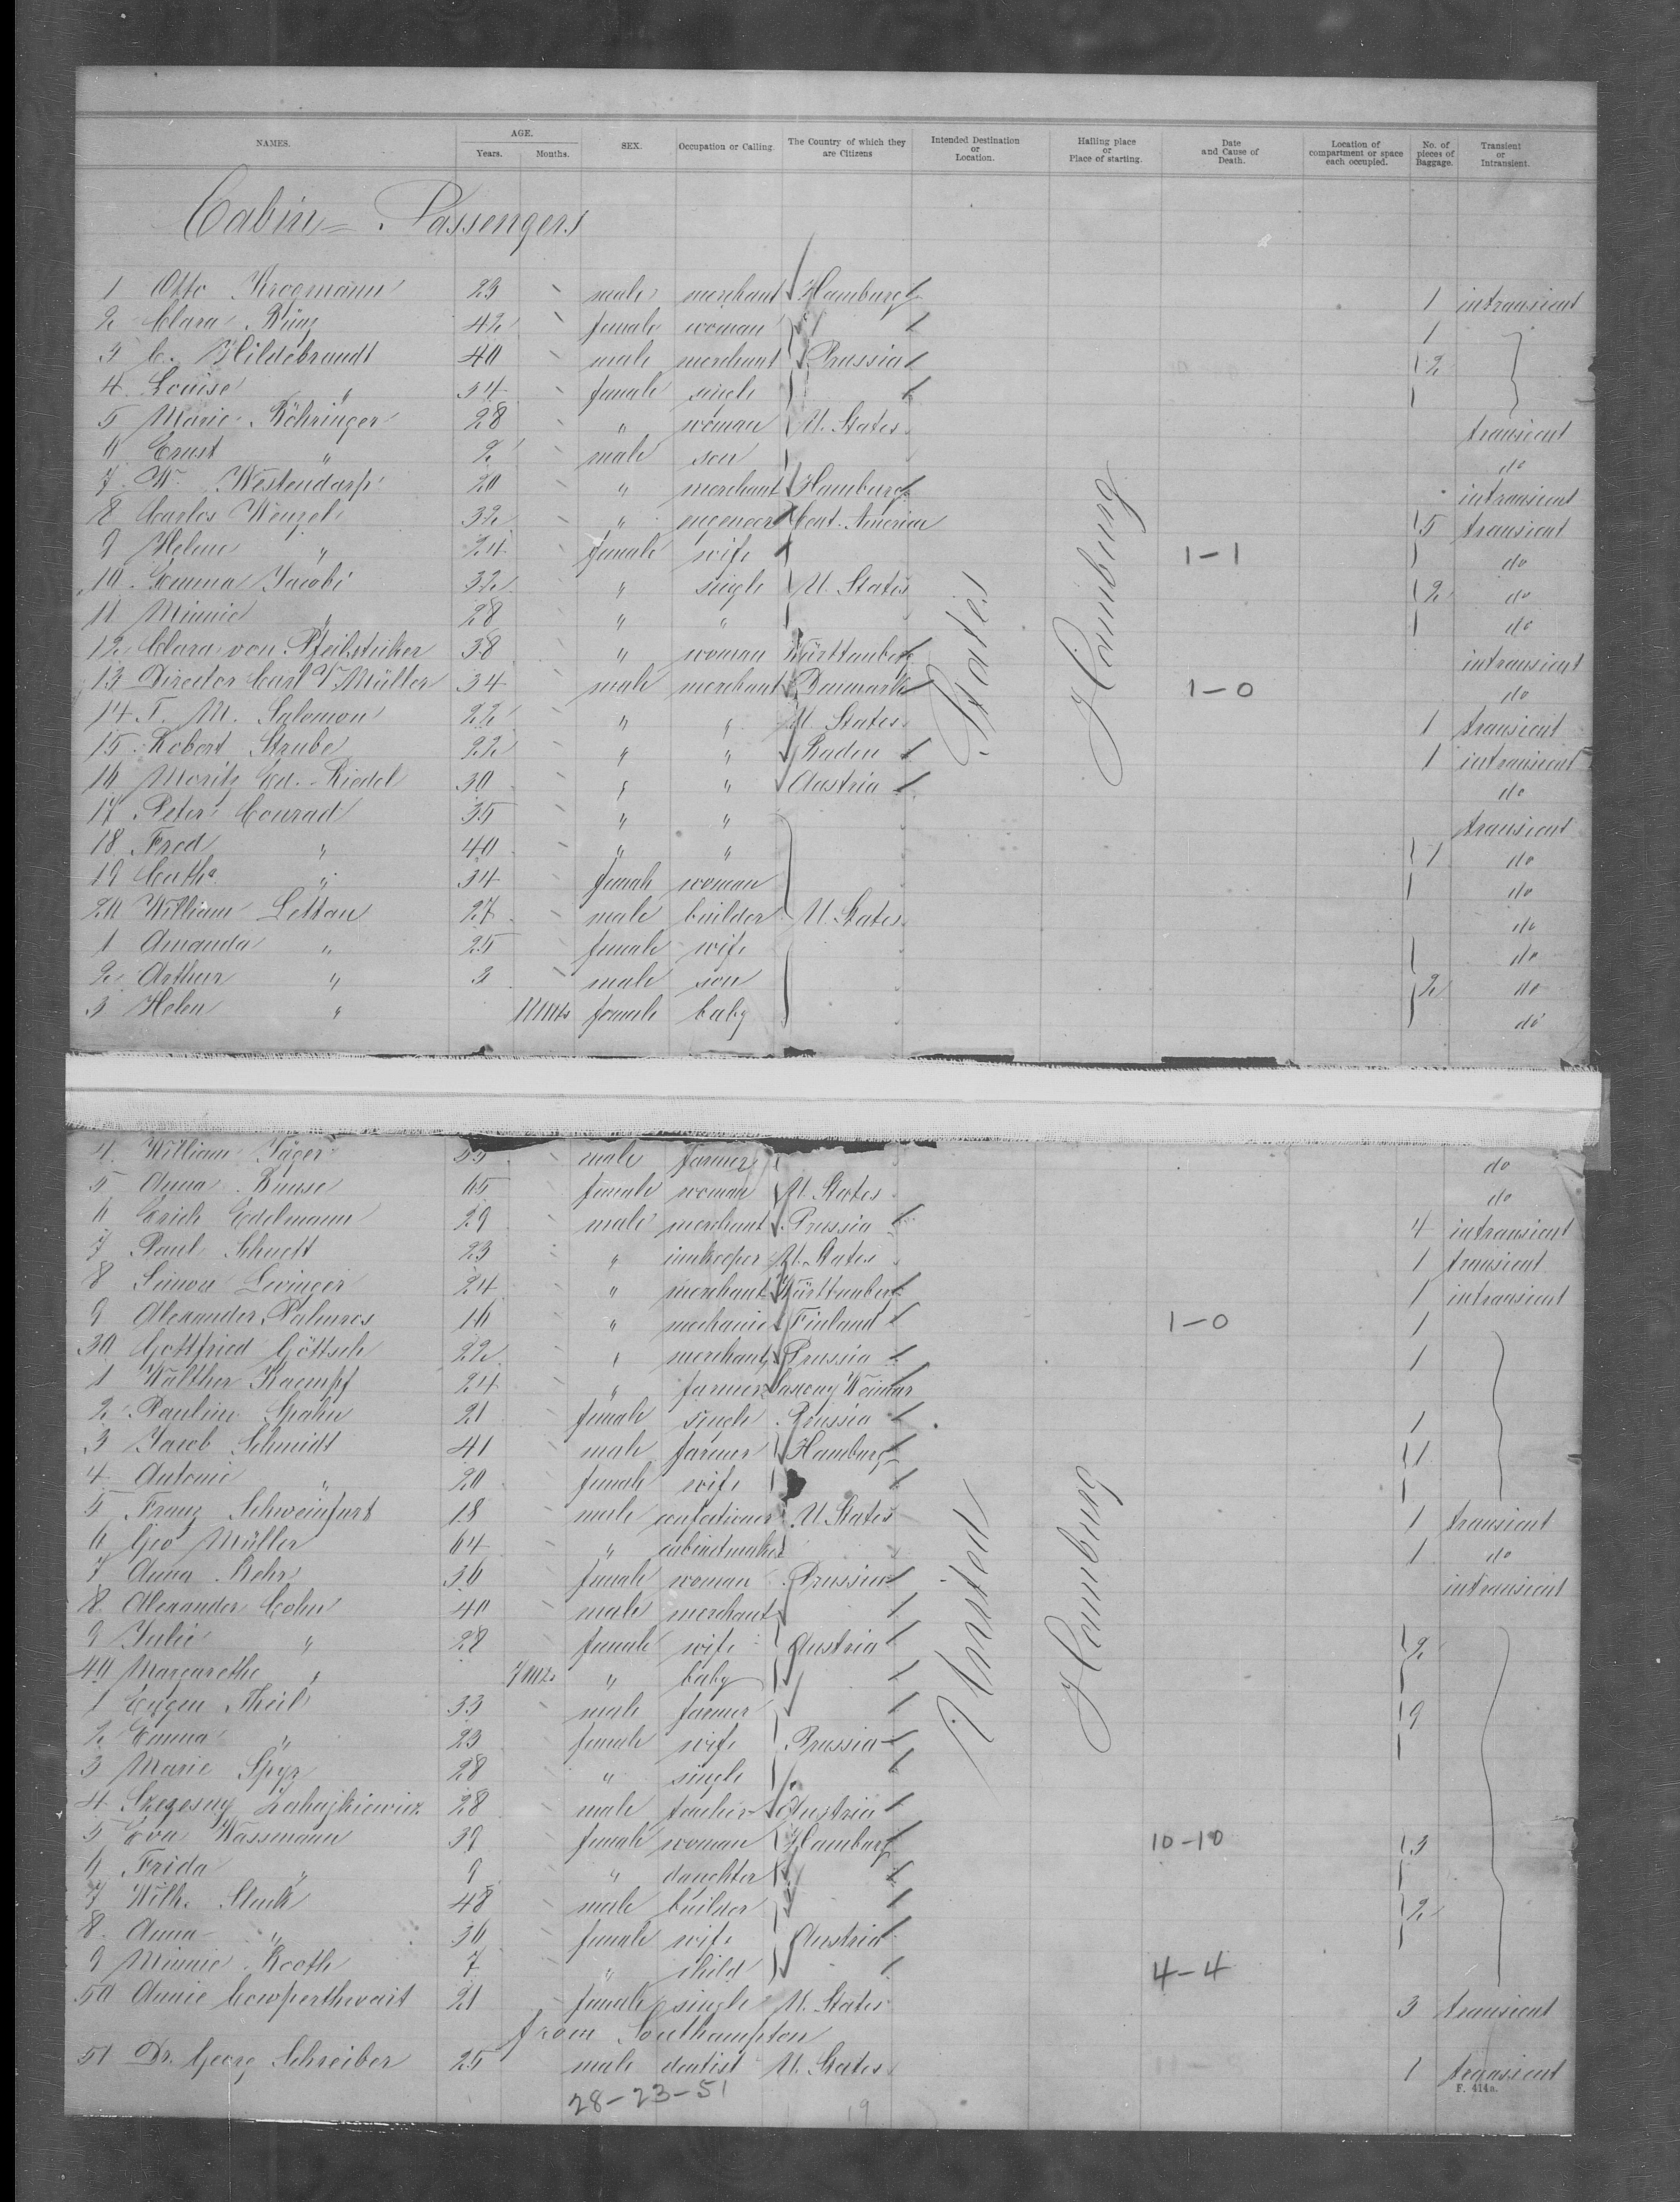 NAMES. AGE. Years. Months. SEX. Occupation or Calling. The Country of which they are Citizens Intended Destination or Location. Hailing place or Place of starting. Date and Cause of Death. Location of compartment or space each occupied. No. of pieces of Baggage. Transient or Intransient.
Cabin = Passengers
1 Otto Krogmann 23 male merchant Hamburg 1 intransient
2 Clara 42 female woman 1
3 C. Hildebrandt 40 male merchant Prussia 2
4 Louise " 34 female single
5 Marie Röhringer 28 " woman U. States transient
6 Ernst " 2 male son do
7 Wm Westendarp 20 " merchant Hamburg intransient
8 Carlos Wenzel 32 " engeneer Cent. America 5 transient
9 Helene " 24 female wife 1-1 do
10 Emma Jacobi 32 " single U. States 2 do
11 Minnie " 28 " " do
12 Clara von 38 " woman Württemberg intransient
13 Director Carl Müller 34 male merchant Denmark 1-0 do
14 T. M. Salomon 22 " " U. States 1 transient
15 Robert Strube 22 " " Baden 1 intransient
16 Moritz Ed. Riedel 30 " " Austria do
17 Peter Conrad 35 " " transient
18 Fred " 40 " " 1 do
19 Catha " 34 female woman do
20 William Lettau 27 male builder U. States do
1 Amanda " 25 female wife do
2 Arthur " 3 male son 2 do
3 Helen " 11 mts female baby do
States
Hamburg
4 William Jäger male farmer do
5 Anna 65 female woman U. States do
6 Erich Edelmann 29 male merchant Prussia 4 intransient
7 Paul Schuett 23 " innkeeper U. States 1 transient
8 Simon Levinger 24 " merchant Württemberg 1 intransient
9 Alexander 16 " mechanic Finland 1-0 1
30 Gottfried Göttsch 22 " merchant Prussia 1
1 Walther Kaempf 24 " farmer Saxony Weimar
2 Pauline Spahn 21 female single Prussia 1
3 Jacob Schmidt 41 male farmer Hamburg 1
4 Antonie " 20 female wife
5 Franz Schweinfurt 18 male confectioner U. States 1 transient
6 Geo Müller 64 " cabinetmaker 1 do
7 Anna Rehr 36 female woman Prussia intransient
8 Alexander Cohn 40 male merchant
9 Julie " 28 female wife Austria 2
40 Margarethe " 7 mts " baby
1 Eugen Theil 33 male farmer 9
2 Emma " 23 female wife Prussia
3 Marie Spyr 28 " single
4 Szczesny 28 male Austria
5 Eva Wassmann 39 female woman Hamburg 10-10 3
6 Frida " 9 " daughter
7 Wilh. 48 male builder 2
8 Anna " 36 female wife Austria
9 Minnie Kooth 7 " child 4-4
50 Annie Cowperthwait 21 female single U. States 3 transient
from Southampton
51 Dr. Georg Schreiber 25 male dentist U. States 1 transient
United
Hamburg
28-23-51
19
F. 414a.